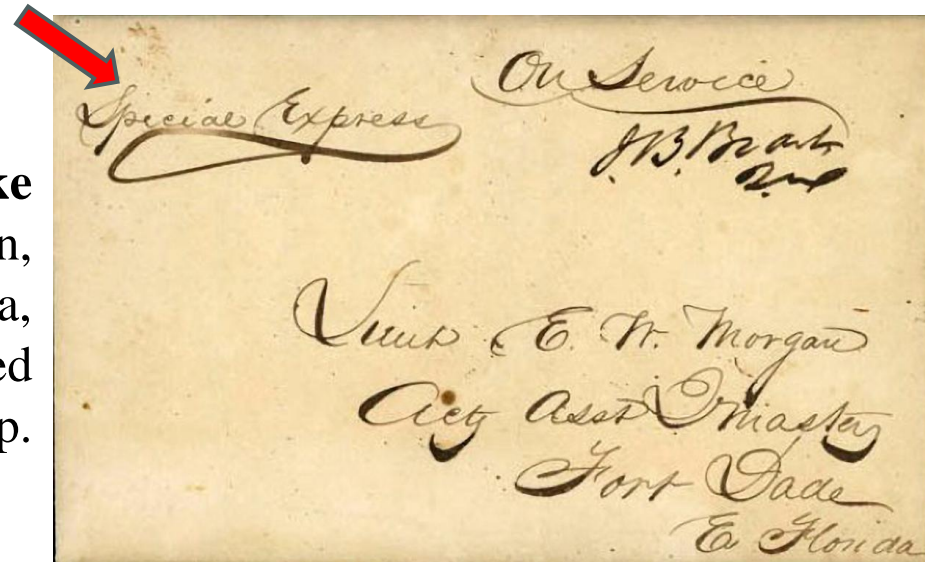 ke
n,
a,
ed
p.
Special Express
On Service
J. B. Brant
Lieut E. W. Morgan
Actg Asst Qrmaster
Fort Dade
E Florida